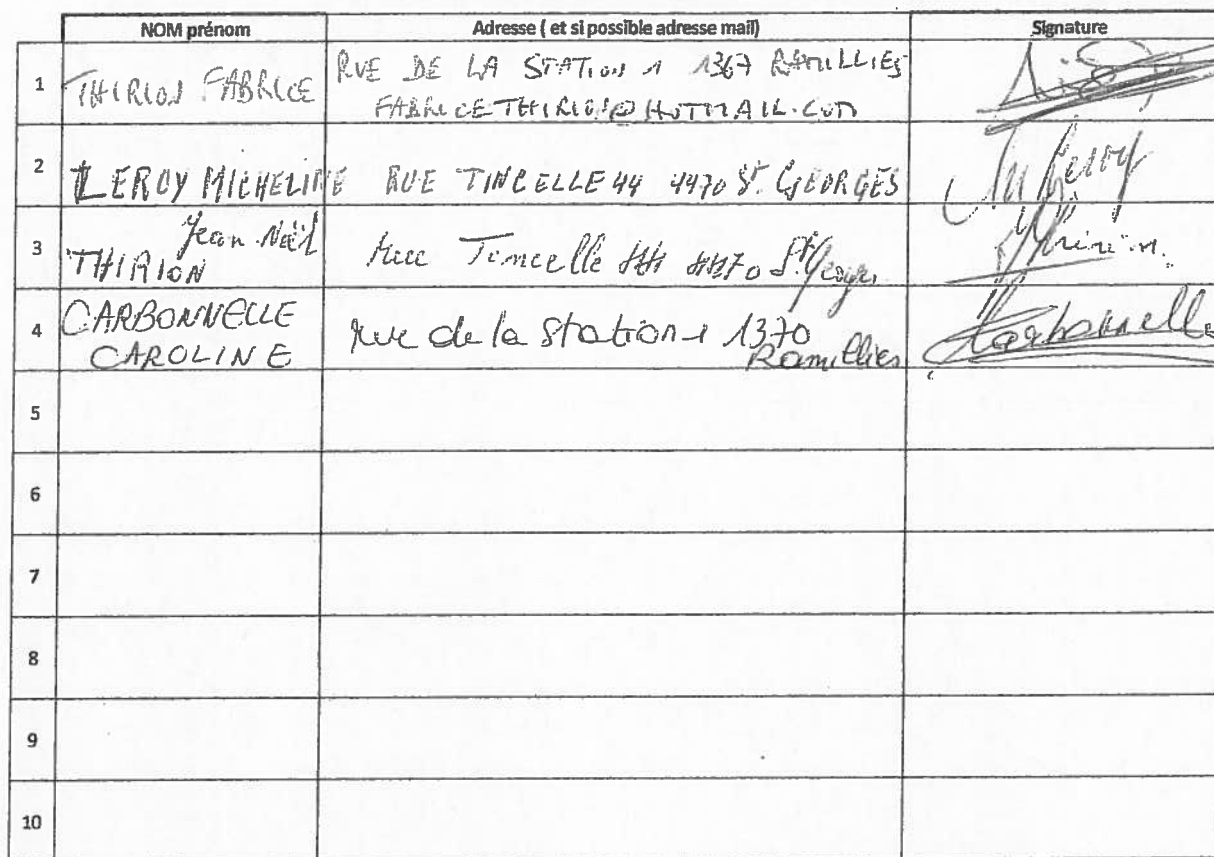 NOM prénom Adresse ( et si possible adresse mail) Signature
1 THIRION FABRICE RUE DE LA STATION 1 1367 RAMILLIES
FABRICETHIRION@HOTMAIL.COM
2 LEROY MICHELINE RUE TINCELLE 44 4470 St. GEORGES M Leroy
3 Jean-Noël
THIRION Rue Tincelle 44 4470 St Georges Thirion
4 CARBONNELLE
CAROLINE rue de la Station 1 1370
Ramillies Carbonnelle
5
6
7
8
9
10